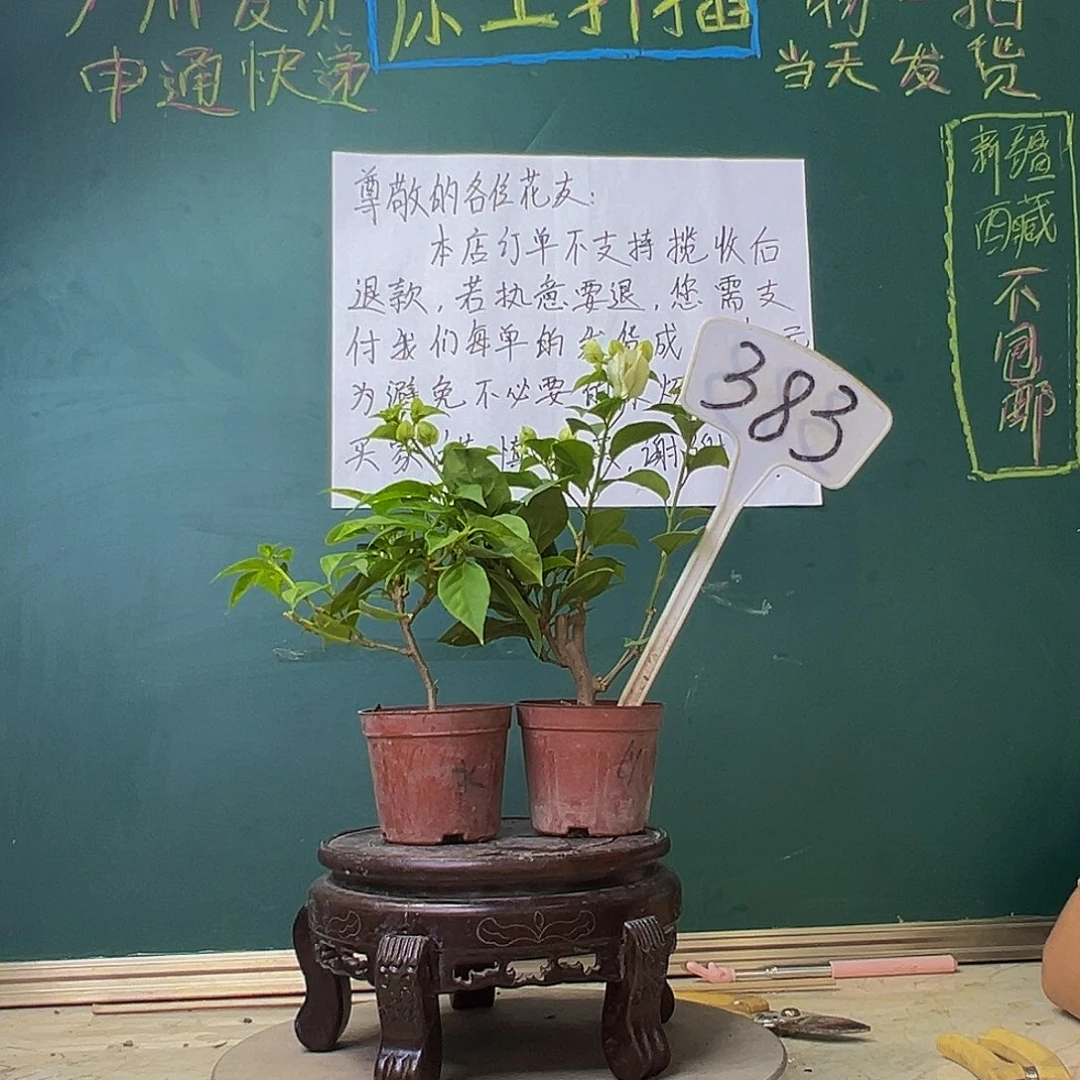 广州发货
原土扦插
一物一拍
申通快递
当天发货
新疆
西藏
不包邮
尊敬的各位花友:
本店订单不支持揽收后
退款,若执意要退,您需支
付我们每单的发货成
为避免不必要的
买家
谢谢
383